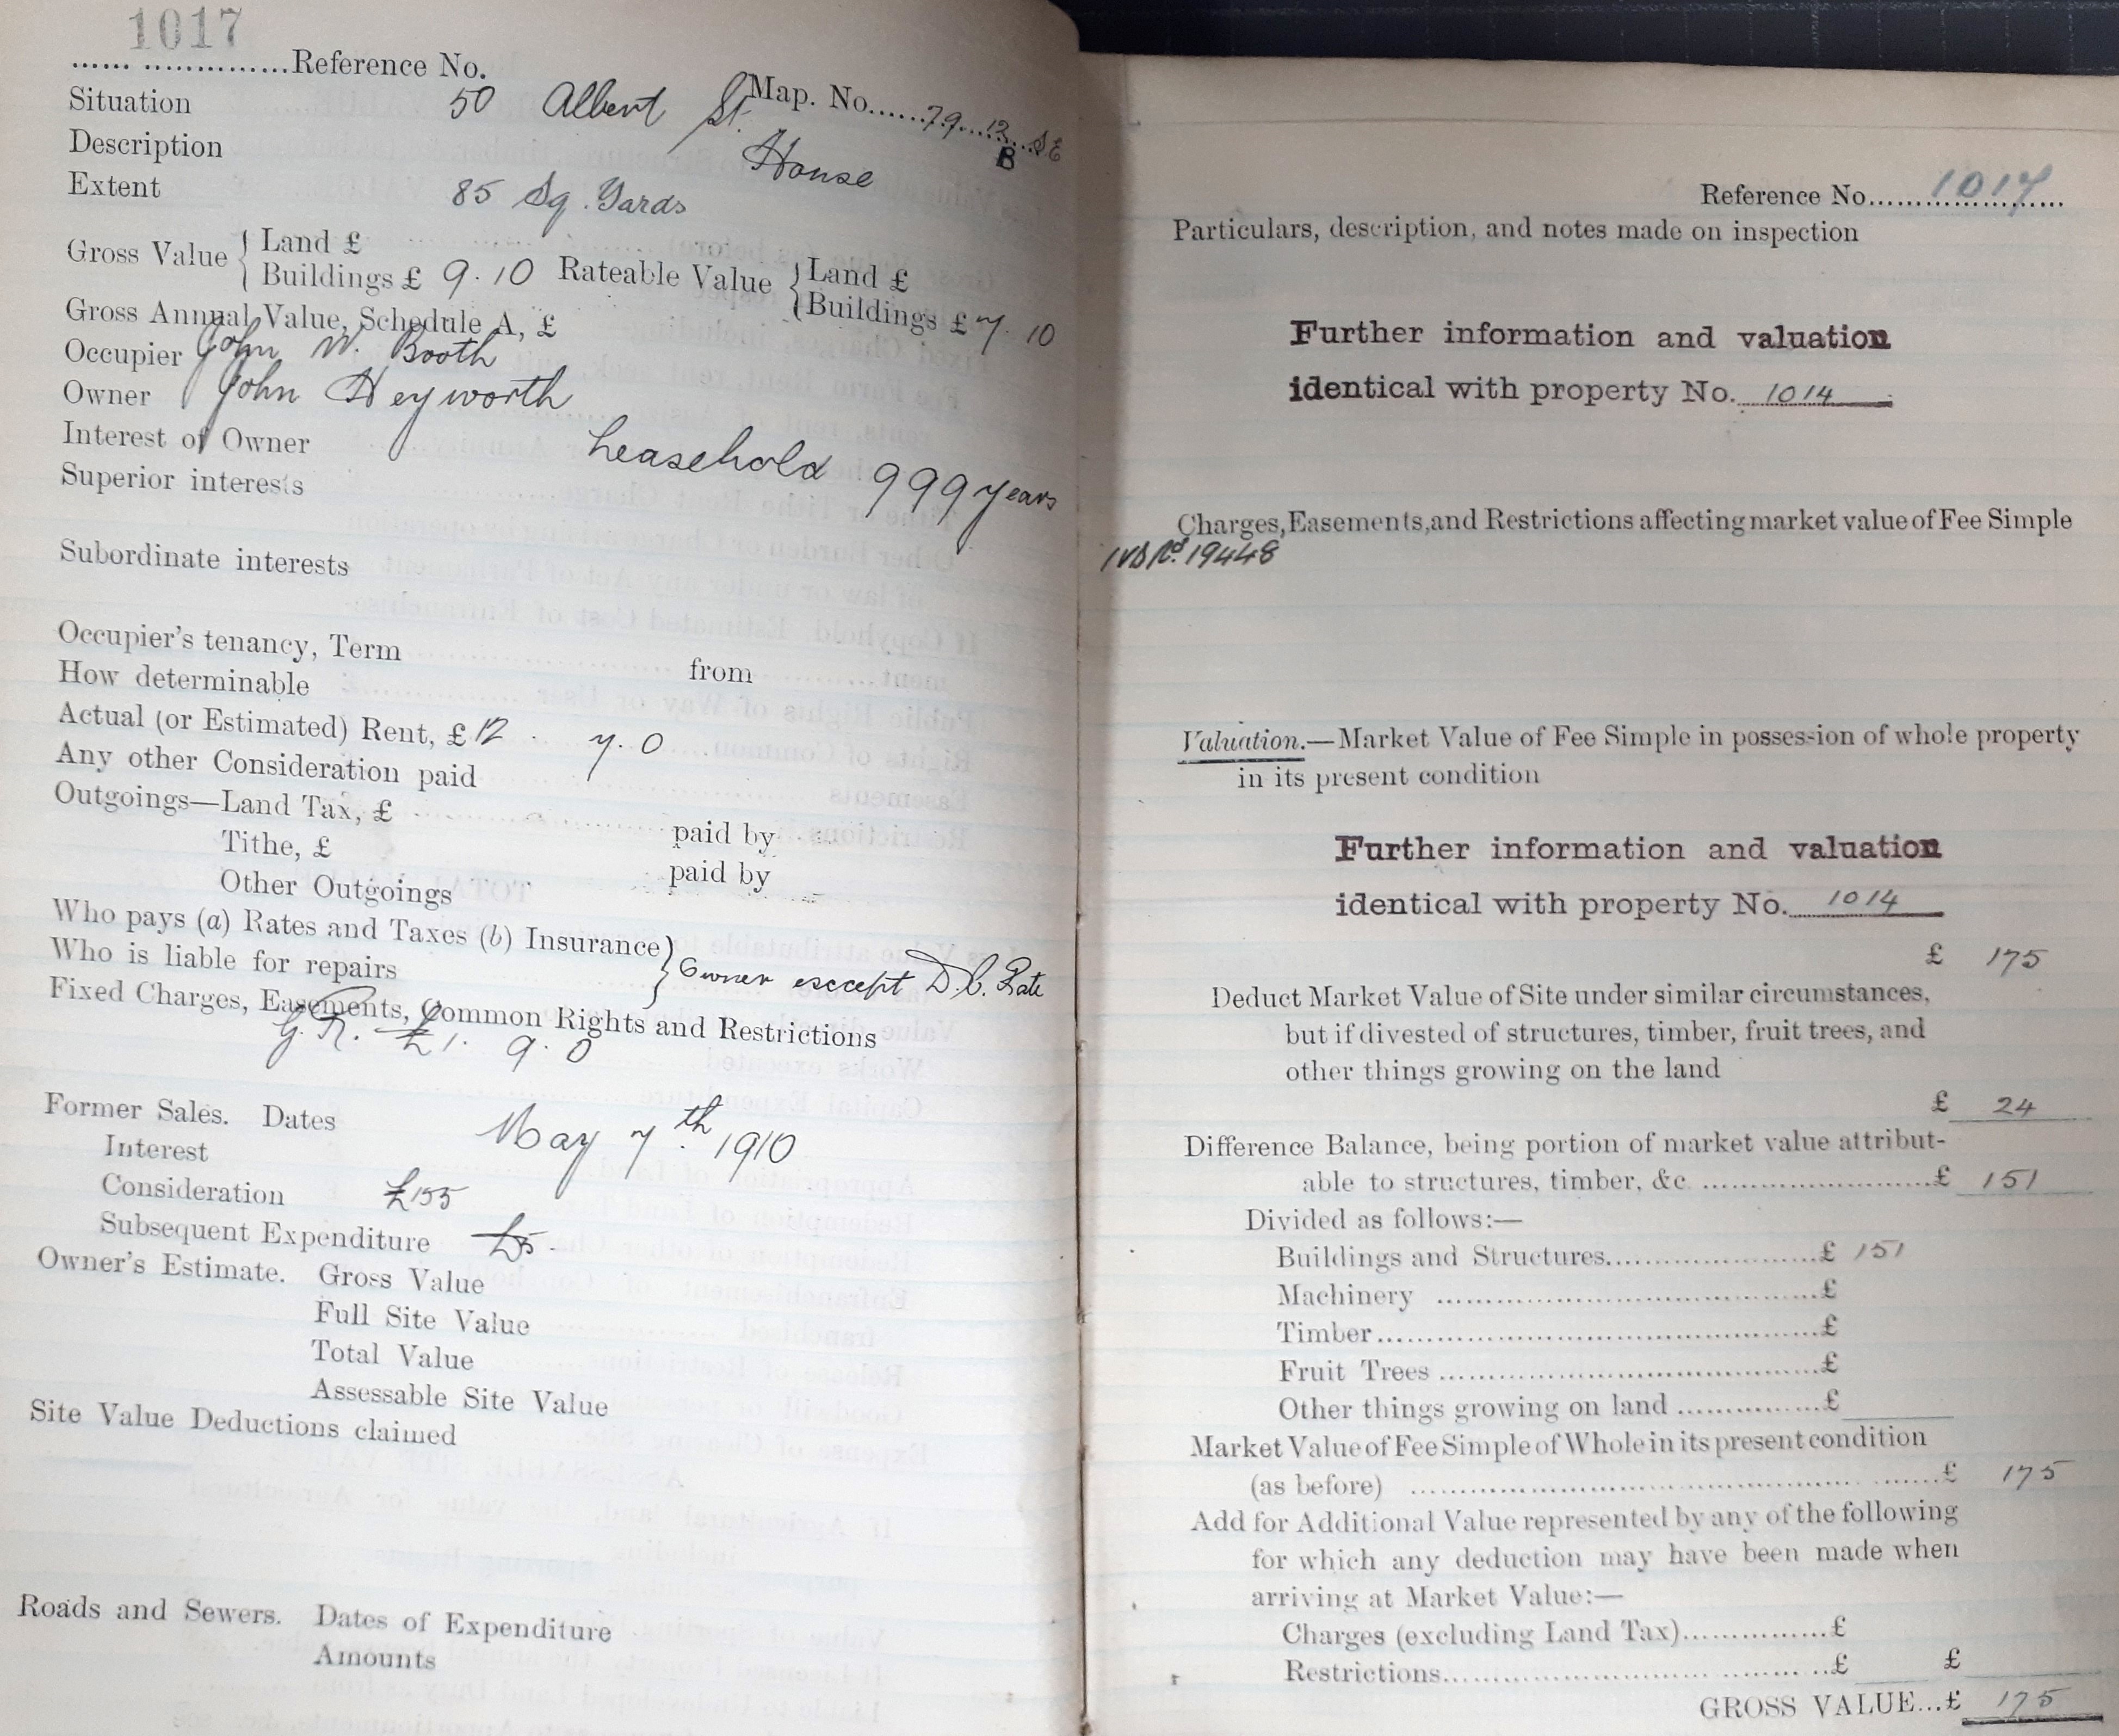 1017
Reference No.
Map. No. 79 12 SE
B
Situation 50 Albert St.
Description House
Extent 85 Sq. Yards
Gross Value { Land £
Buildings £ 9. 10 Rateable Value { Land £
Buildings £ 7. 10
Gross Annual Value, Schedule A, £
Occupier John W. Booth
Owner John Heyworth
Interest of Owner Leasehold 999 years
Superior interests
Subordinate interests
Occupier's tenancy, Term from
How determinable
Actual (or Estimated) Rent, £ 12. 7. 0
Any other Consideration paid
Outgoings—Land Tax, £ paid by
Tithe, £ paid by
Other Outgoings
Who pays (a) Rates and Taxes (b) Insurance }
Who is liable for repairs } Owner except D.C. Rate
Fixed Charges, Easements, Common Rights and Restrictions
G. R. £1. 9. 0
Former Sales. Dates May 7th 1910
Interest
Consideration £155
Subsequent Expenditure £5.
Owner's Estimate. Gross Value
Full Site Value
Total Value
Assessable Site Value
Site Value Deductions claimed
Roads and Sewers. Dates of Expenditure
Amounts
Reference No. 1017
Particulars, description, and notes made on inspection
Further information and valuation
identical with property No. 1014
Charges, Easements, and Restrictions affecting market value of Fee Simple
19448
Valuation.—Market Value of Fee Simple in possession of whole property
in its present condition
Further information and valuation
identical with property No. 1014
£ 175
Deduct Market Value of Site under similar circumstances,
but if divested of structures, timber, fruit trees, and
other things growing on the land
£ 24
Difference Balance, being portion of market value attribut-
able to structures, timber, &c. £ 151
Divided as follows:—
Buildings and Structures £ 151
Machinery £
Timber £
Fruit Trees £
Other things growing on land £
Market Value of Fee Simple of Whole in its present condition
(as before) £ 175
Add for Additional Value represented by any of the following
for which any deduction may have been made when
arriving at Market Value:—
Charges (excluding Land Tax) £
Restrictions £ £
GROSS VALUE...£ 175